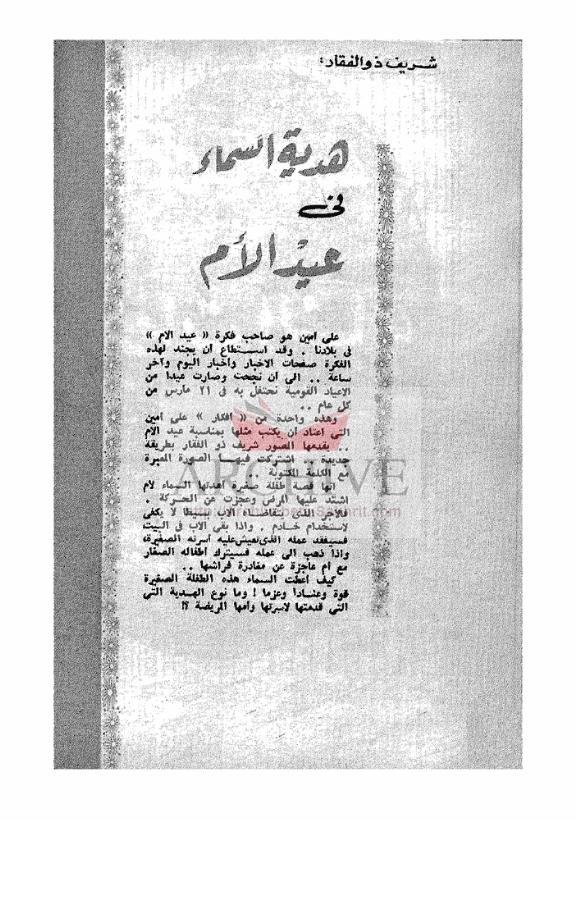 شريف ذو الفقار:
هدية السماء
فى
عيد الأم
على امين هو صاحب فكرة « عيد الام »
فى بلادنا . وقد استطاع أن يجند لهذه
الفكرة صفحات الاخبار واخبار اليوم وآخر
ساعة .. الى أن نجحت وصارت عيدا من
الاعياد القومية نحتفل به فى ٢١ مارس من
كل عام ..
وهذه واحدة من « افكار » على امين
التى اعتاد أن يكتب مثلها بمناسبة عيد الام
.. يقدمها المصور شريف ذو الفقار بطريقة
جديدة .. اشتركت فيها الصورة المعبرة
مع الكلمة المكتوبة
انها قصة طفلة صغيرة أهدتها السماء لام
اشتد عليها المرض وعجزت عن الحركة .
فالاجر الذى يتقاضاه الاب بسيط لا يكفى
لاستخدام خادم . واذا بقى الاب فى البيت
فسيفقد عمله الذى تعيش عليه أسرته الصغيرة،
واذا ذهب الى عمله فسيترك اطفاله الصغار
مع ام عاجزة عن مغادرة فراشها ..
كيف أعطت السماء هذه الطفلة الصغيرة
قوة وعنادا وعزما ! وما نوع الهدية التى
التى قدمتها لاسرتها وأمها المريضة ؟!
ARCHIVE